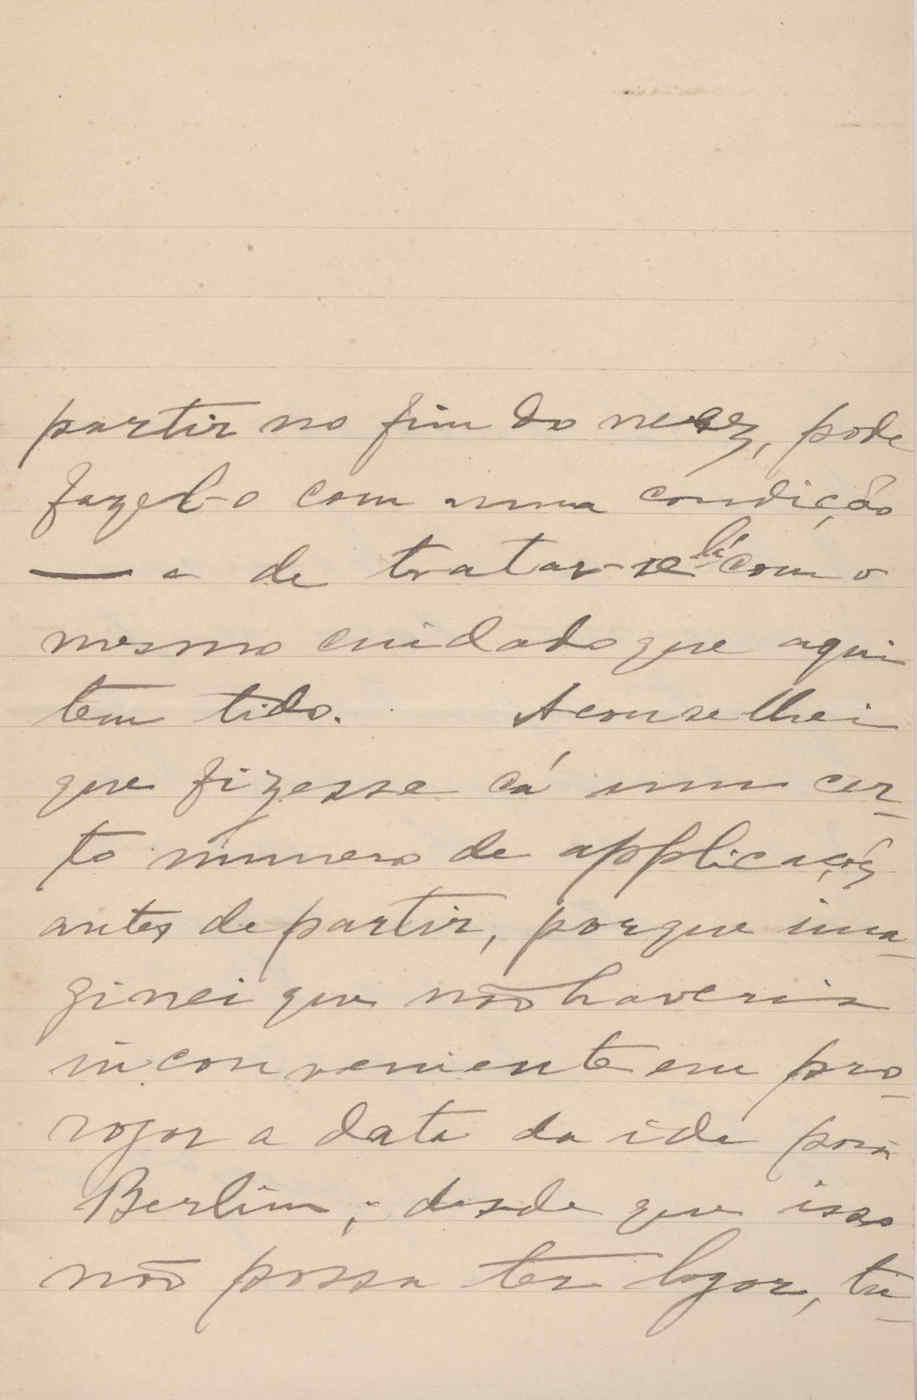 partir no fim do mez, pode
fazel-o com uma condição
— a de tratar-se lá com o
mesmo cuidado que aqui
tem tido. Aconselhei
que fizesse cá um cer-
to numero de applicações
antes de partir, porque ima-
ginei que não haveria
inconveniente em pro-
rogar a data da ida para
Berlim; desde que isso
não possa ter logar, tu-